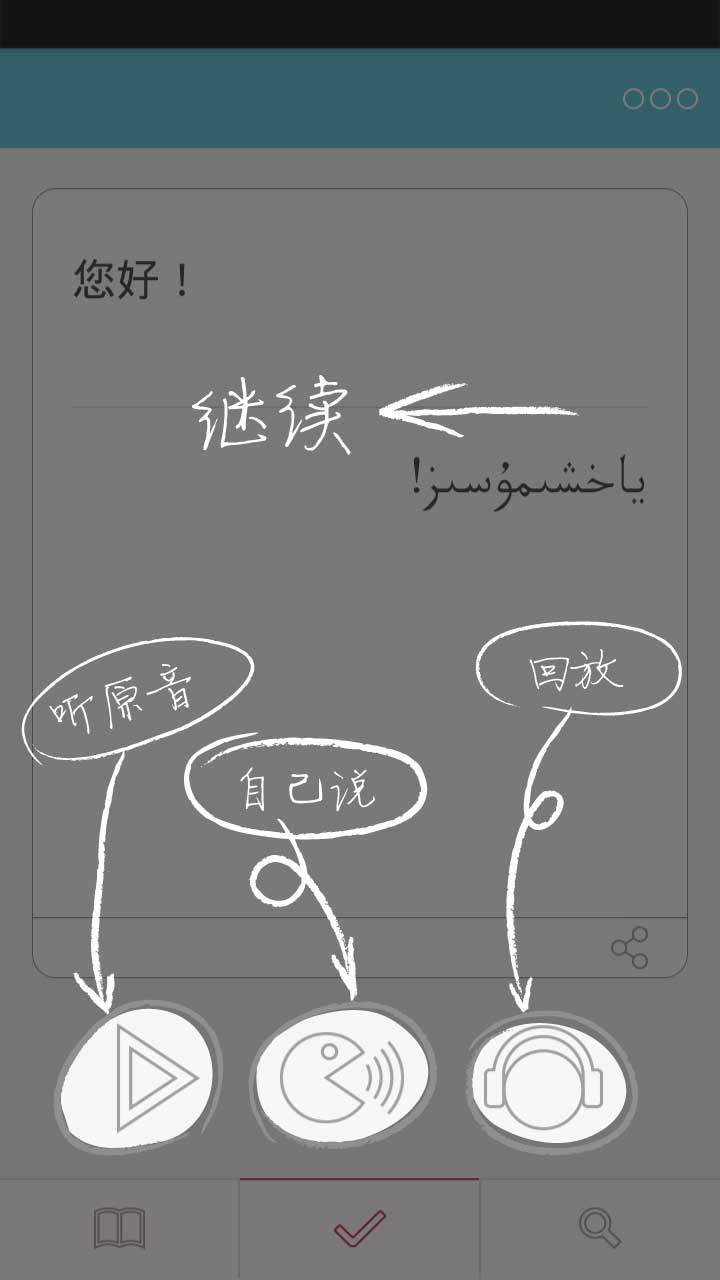 您好！
继续
ياخشىمۇسىز!
回放
听原音
自己说